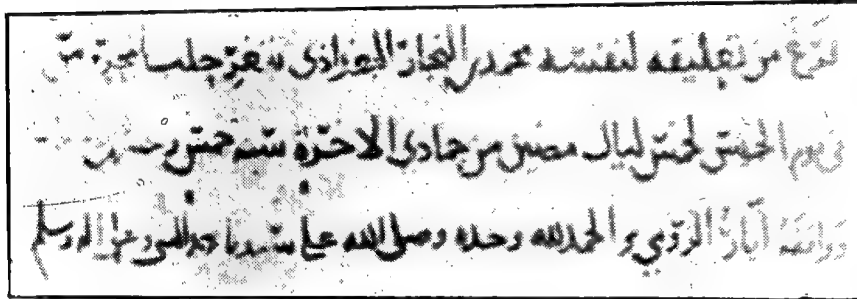 فرغ من تعليقه لنفسه محمد بن النجار البغدادي بثغر حلب
في يوم الخميس لخمس ليال مضين من جمادى الاخرة سنة خمس
ووافقه أيار الرومي والحمد لله وحده وصلى الله على سيدنا محمد النبي وعلى اله وسلم